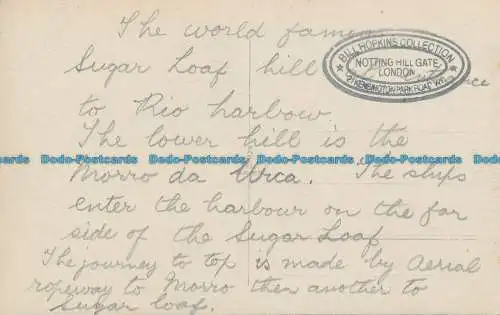 The world famous
Sugar Loaf hill
to Rio harbour.
The lower hill is the
Morro da Urca. The ships
enter the harbour on the far
side of the Sugar Loaf
The journey to top is made by Aerial
ropeway to Morro then another to
Sugar loaf.
BILL HOPKINS COLLECTION
NOTTING HILL GATE
LONDON
KENSINGTON PARK ROAD W11
Dodo-Postcards Dodo-Postcards Dodo-Postcards Dodo-Postcards Dodo-Postcards Dodo-Postcards